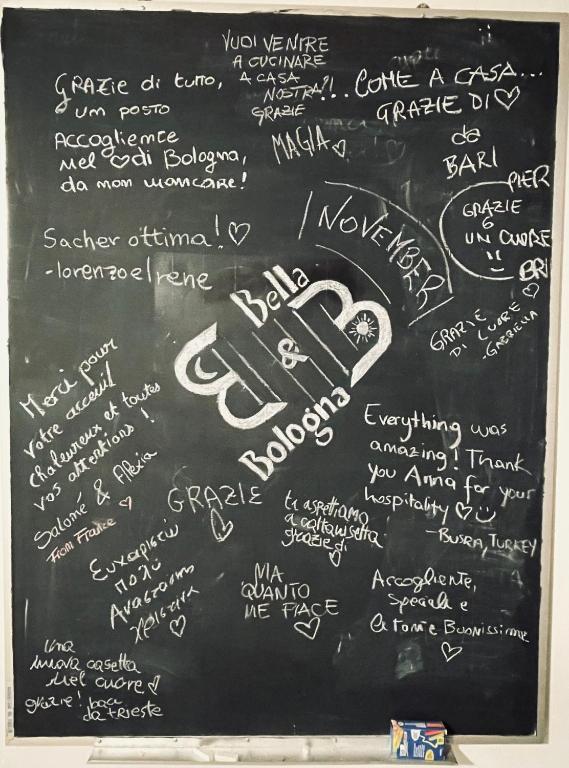 VUOI VENIRE
A CUCINARE
A CASA
NOSTRA?!
GRAZIE
GRAZIE di tutto,
un posto
Accogliente
nel ♡ di Bologna,
da non mancare!
...COME A CASA...
GRAZIE DI ♡
da
BARI
MAGIA ♡
PIER
GRAZIE
6
UN CUORE
BRI
NOVEMBER
Sacher ottima! ♡
-lorenzo e Irene
GRAZIE
DI CUORE
-GABRIELLA
Bella
B&B
Bologna
Merci pour
votre accueil
chaleureux et toutes
vos attentions !
Salomé & Alexia
From France ♡
Everything was
amazing! Thank
you Anna for your
hospitality ♡
-BUSRA, TURKEY
GRAZIE
♡
ti aspettiamo
a caltanisetta
grazie di
♡
Ευχαριστώ
πολύ
Αναστασία
Χριστίνα
♡
MA
QUANTO
ME PIACE
♡
Accogliente,
Speciale e
le torte Buonissime
♡
Una
nuova casetta
nel cuore ♡
grazie! baci
da trieste